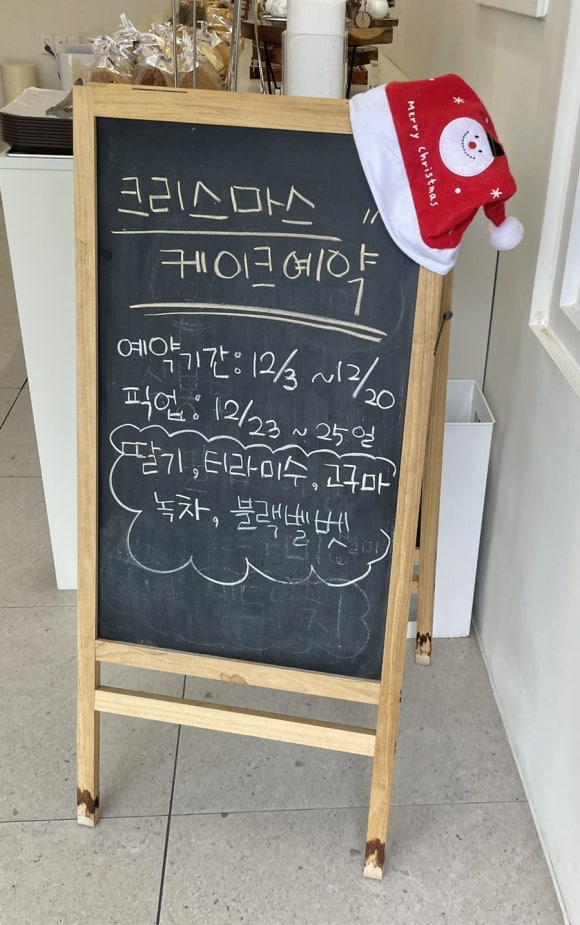 크리스마스
케이크 예약
예약기간: 12/3 ~ 12/20
픽업: 12/23 ~ 25일
딸기, 티라미수, 고구마
녹차, 블랙벨벳
Merry Christmas